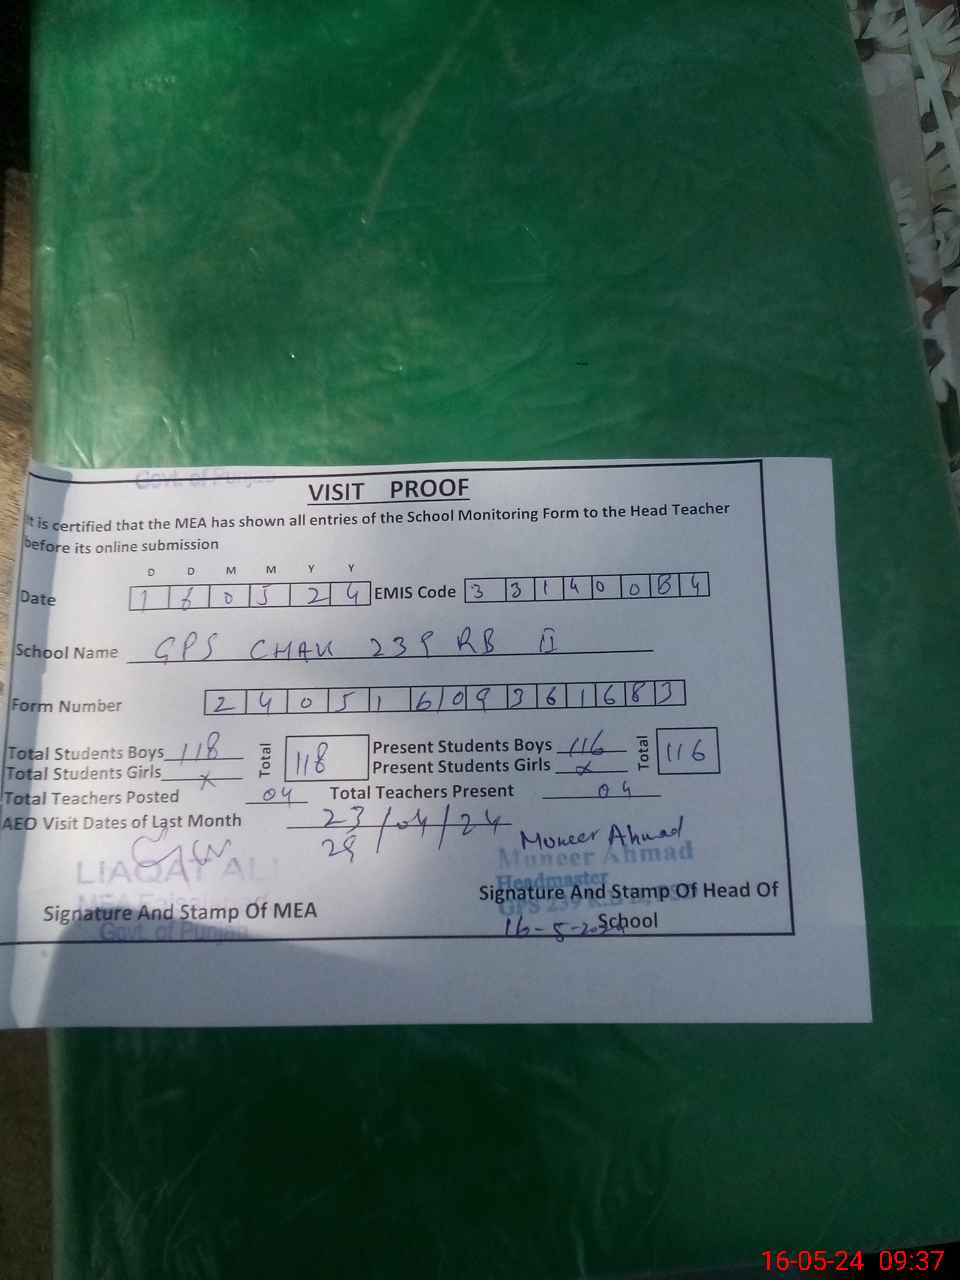 Govt. of Punjab
VISIT PROOF
It is certified that the MEA has shown all entries of the School Monitoring Form to the Head Teacher
before its online submission
D D M M Y Y
Date 1 6 0 5 2 4 EMIS Code 3 3 1 4 0 0 6 4
School Name GPS CHAK 239 RB II
Form Number 2 4 0 5 1 6 0 9 3 6 1 6 8 3
Total Students Boys 118 Total 118 Present Students Boys 116 Total 116
Total Students Girls x Present Students Girls x
Total Teachers Posted 04 Total Teachers Present 04
AEO Visit Dates of Last Month 23/04/24
29
Muneer Ahmad
LIAQAT ALI Muneer Ahmad
Headmaster
MEA GPS 239 R.B
Signature And Stamp Of MEA Signature And Stamp Of Head Of
School
Govt. of Punjab 16-5-2024
16-05-24 09:37